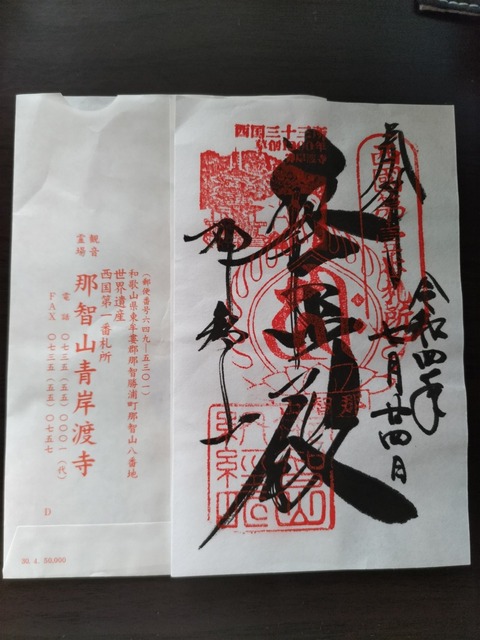 奉拝
令和四年
七月廿四日
西国第一番札所
西国三十三所
草創1300年
那智山
(郵便番号六四九―五三〇一)
和歌山県東牟婁郡那智勝浦町那智山八番地
世界遺産
西国第一番札所
観音
霊場
那智山青岸渡寺
電話 〇七三五(五五)〇〇〇一(代)
FAX 〇七三五(五五)〇七五七
D
30. 4. 50,000